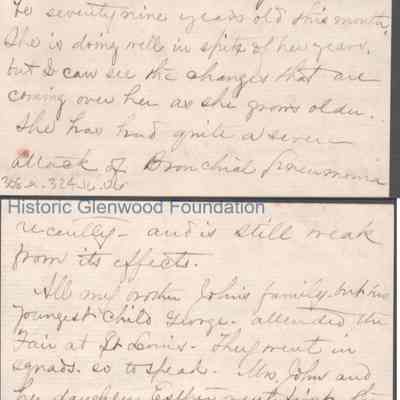 be seventy nine years old this month.
She is doing well in spite of her years,
but I can see the changes that are
coming over her as she grows older.
She has had quite a severe
attack of Bronchial Pneumonia
Historic Glenwood Foundation
recently - and is still weak
from its effects.
All my brother John's family - but his
youngest child George - attended the
Fair at St Louis. They went in
squads, so to speak. Mrs. John and
her daughter Esther went